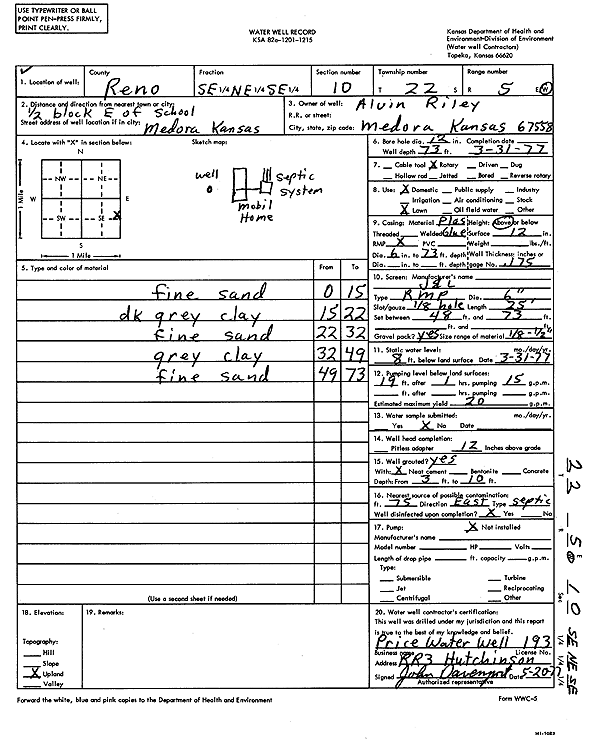 USE TYPEWRITER OR BALL
POINT PEN-PRESS FIRMLY,
PRINT CLEARLY.
WATER WELL RECORD
KSA 82a-1201-1215
Kansas Department of Health and
Environment-Division of Environment
(Water well Contractors)
Topeka, Kansas 66620
1. Location of well: County Reno Fraction SE 1/4 NE 1/4 SE 1/4 Section number 10 Township number T 22 S Range number R 5 E W
2. Distance and direction from nearest town or city: 1/2 block E of School
Street address of well location if in city: Medora Kansas
3. Owner of well: Alvin Riley
R.R. or street:
City, state, zip code: Medora Kansas 67558
4. Locate with "X" in section below: Sketch map:
N
NW NE
W E
SW SE X
S
1 Mile
1 Mile
well
septic
system
mobil
Home
6. Bore hole dia. 12 in. Completion date
Well depth 73 ft. 3-31-77
7. Cable tool X Rotary Driven Dug
Hollow rod Jetted Bored Reverse rotary
8. Use: X Domestic Public supply Industry
Irrigation Air conditioning Stock
X Lawn Oil field water Other
9. Casing: Material Plas Height: Above or below
Threaded Welded Glue Surface 12 in.
RMP X PVC Weight lbs./ft.
Dia. 6 in. to 73 ft. depth Wall Thickness: inches or
Dia. in. to ft. depth gage No. .175
5. Type and color of material From To
fine sand 0 15
dk grey clay 15 22
fine sand 22 32
grey clay 32 49
fine sand 49 73
(Use a second sheet if needed)
10. Screen: Manufacturer's name
J&L
Type RMP Dia. 6"
Slot/gauze 1/8 hole Length 25'
Set between 48 ft. and 73 ft.
ft. and ft.
Gravel pack? yes Size range of material 1/8-1/2"
11. Static water level: mo./day/yr.
8 ft. below land surface Date 3-31-77
12. Pumping level below land surfaces:
19 ft. after 1 hrs. pumping 15 g.p.m.
ft. after hrs. pumping g.p.m.
Estimated maximum yield 20 g.p.m.
13. Water sample submitted: mo./day/yr.
Yes X No Date
14. Well head completion:
Pitless adapter 12 Inches above grade
15. Well grouted? yes
With: X Neat cement Bentonite Concrete
Depth: From 3 ft. to 10 ft.
16. Nearest source of possible contamination:
ft. 75 Direction EAST Type septic
Well disinfected upon completion? X Yes No
17. Pump: X Not installed
Manufacturer's name
Model number HP Volts
Length of drop pipe ft. capacity g.p.m.
Type:
Submersible Turbine
Jet Reciprocating
Centrifugal Other
18. Elevation:
Topography:
Hill
Slope
X Upland
Valley
19. Remarks:
20. Water well contractor's certification:
This well was drilled under my jurisdiction and this report
is true to the best of my knowledge and belief.
Price Water Well 193
Business name License No.
Address RR3 Hutchinson
Signed John Davenport Date 5-20-77
Authorized representative
Forward the white, blue and pink copies to the Department of Health and Environment
Form WWC-5
22 - 5 10 SE NE SE
T R E Sec 1/4 1/4 1/4